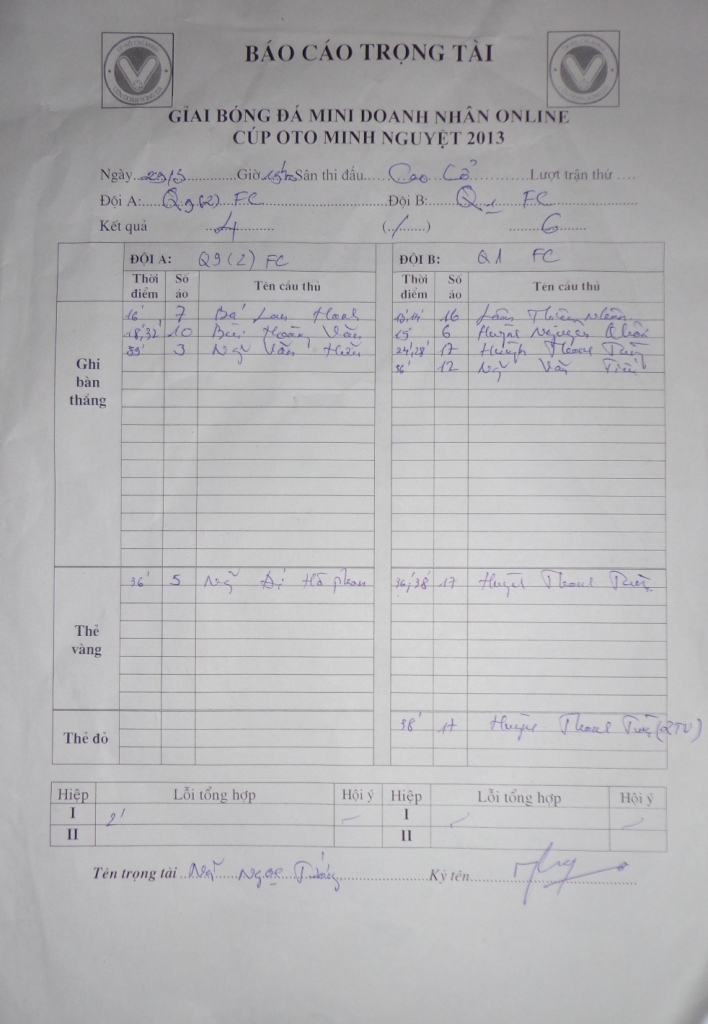 BÁO CÁO TRỌNG TÀI
GIẢI BÓNG ĐÁ MINI DOANH NHÂN ONLINE
CÚP OTO MINH NGUYỆT 2013
Ngày 29/3 Giờ Sân thi đấu Lượt trận thứ
Đội A: Q9(2) FC Đội B: Q1 FC
Kết quả 4 (./.) 6
ĐỘI A: Q9(2) FC ĐỘI B: Q1 FC
Thời điểm Số áo Tên cầu thủ Thời điểm Số áo Tên cầu thủ
Ghi bàn thắng
16' 7 Bá Lan 13',14' 16 Lâm Thiên Nhân
18',32' 10 Bùi Hoàng Văn 15' 6 Huỳnh Nguyên
3 Ng Văn 24',28' 17 Huỳnh Thanh
36' 12 Ng Văn
Thẻ vàng
36' 5 Ng 36',38' 17 Huỳnh Thanh
Thẻ đỏ
38' 17 Huỳnh Thanh (2TV)
Hiệp Lỗi tổng hợp Hội ý Hiệp Lỗi tổng hợp Hội ý
I 2' I
II II
Tên trọng tài Ng Ngọc Ký tên